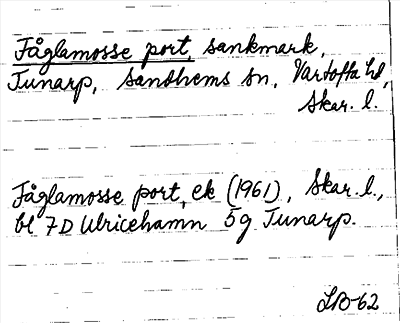 Fåglamosse port, sankmark,
Tunarp, Sandhems sn, Vartofta hd,
Skar. l.
Fåglamosse port, ek (1961), Skar. l.,
bl 7D Ulricehamn 5g Tunarp.
LB-62